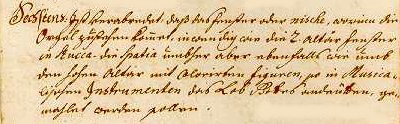 Sechstens. Ist verabredet, daß das fenster oder nische, worinn die
Orgel zustehen kommt, inwendig wie die 2 Altär fenster
in stucca. die spatia umbher aber ebenfalls wie umb
den hohen Altär mit Colorirten figuren, so in Musica-
lischen Instrumenten das Lob Gottes andeuten, ge-
mahlet werden sollen.